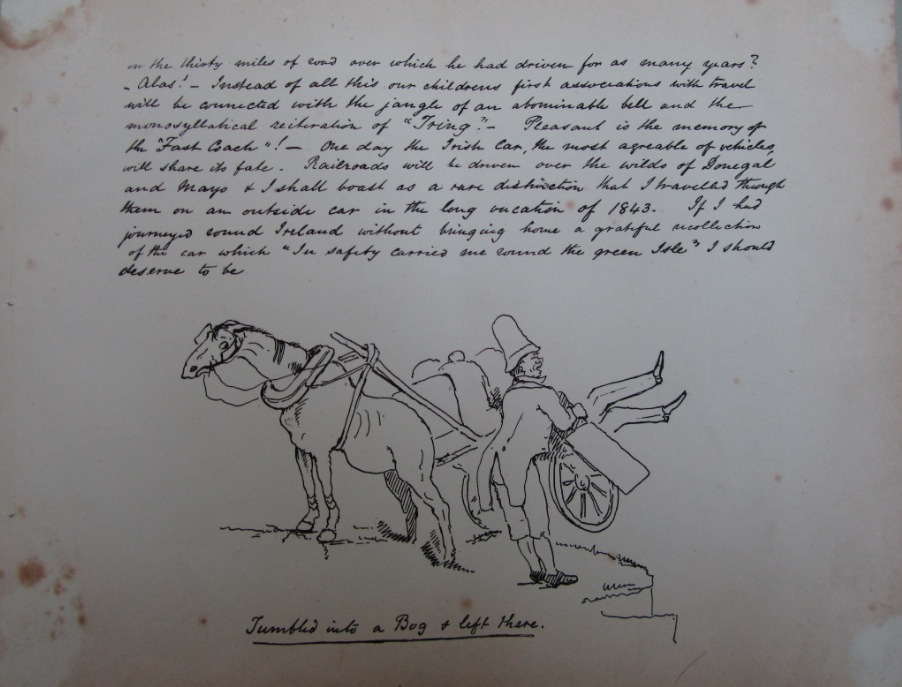 on the thirty miles of road over which he had driven for as many years?
- Alas! - Instead of all this our childrens first associations with travel
will be connected with the jangle of an abominable bell and the
monosyllabical reiteration of "Tring"! - Pleasant is the memory of
the "Fast Coach"! - One day the Irish Car, the most agreable of vehicles,
will share its fate. Railroads will be driven over the wilds of Donegal
and Mayo & I shall boast as a rare distinction that I travelled through
them on an outside car in the long vacation of 1843. If I had
journeyed round Ireland without bringing home a grateful recollection
of the car which "In safety carried me round the green Isle" I should
deserve to be
Tumbled into a Bog & left there.